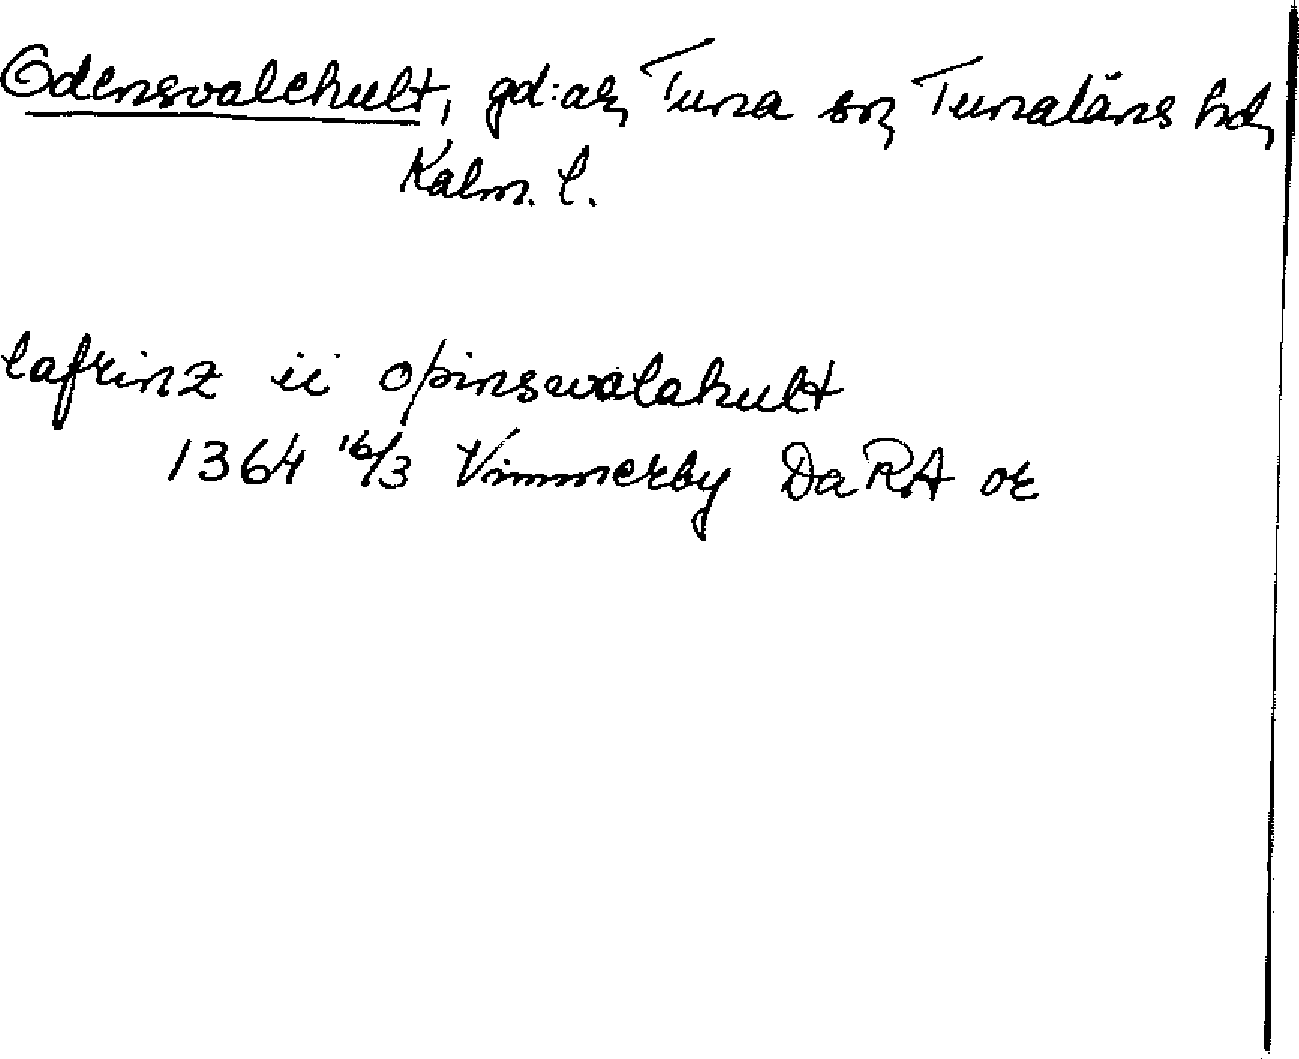 Odensvalehult, gd:ar, Tuna sn, Tunaläns hd,
Kalm. l.
lafrinz ii oþinswalahult
1364 16/3 Vimmerby DaRA or